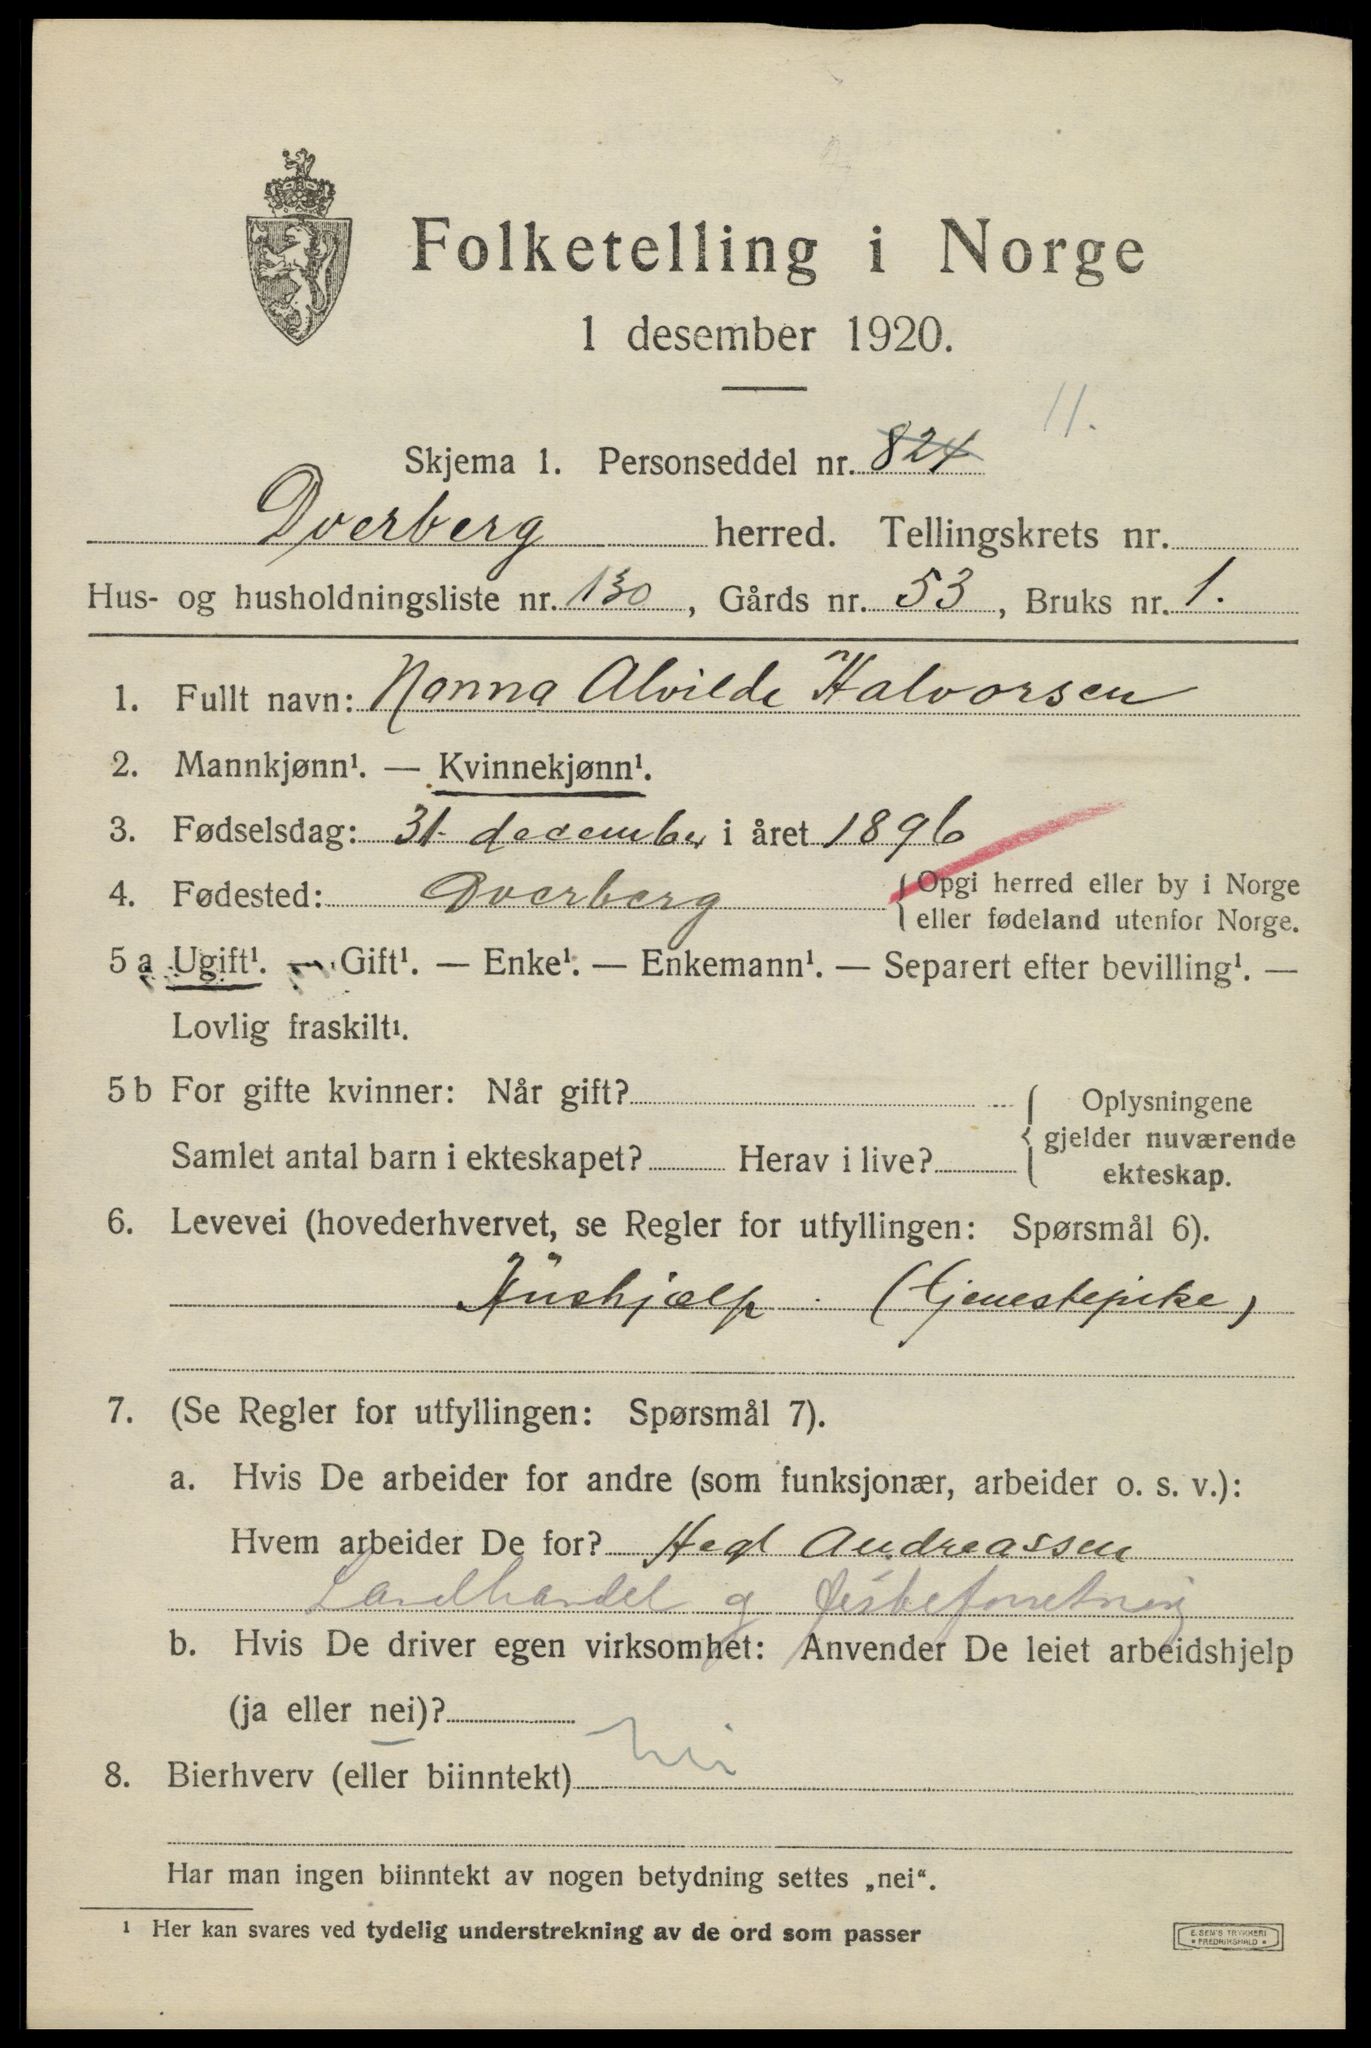 Folketelling i Norge
1 desember 1920.
11.
Skjema 1. Personseddel nr. 824
Dverberg herred. Tellingskrets nr.
Hus- og husholdningsliste nr. 130, Gårds nr. 53, Bruks nr. 1.
1. Fullt navn: Nanna Alvilde Halvorsen
2. Mannkjønn¹. — Kvinnekjønn¹.
3. Fødselsdag: 31. december i året 1896
4. Fødested: Dverberg { Opgi herred eller by i Norge
eller fødeland utenfor Norge.
5 a Ugift¹. — Gift¹. — Enke¹. — Enkemann¹. — Separert efter bevilling¹. —
Lovlig fraskilt¹.
5 b For gifte kvinner: Når gift? { Oplysningene
gjelder nuværende
Samlet antal barn i ekteskapet? Herav i live?
ekteskap.
6. Levevei (hovederhvervet, se Regler for utfyllingen: Spørsmål 6).
Hushjælp. (tjenestepike)
7. (Se Regler for utfyllingen: Spørsmål 7).
a. Hvis De arbeider for andre (som funksjonær, arbeider o. s. v.):
Hvem arbeider De for? Hagl Andreassen
Landhandel og fiskeforretning
b. Hvis De driver egen virksomhet: Anvender De leiet arbeidshjelp
(ja eller nei)?
8. Bierhverv (eller biinntekt) nei
Har man ingen biinntekt av nogen betydning settes „nei“.
¹ Her kan svares ved tydelig understrekning av de ord som passer
E. SEM'S TRYKKERI
• FREDRIKSHALD •